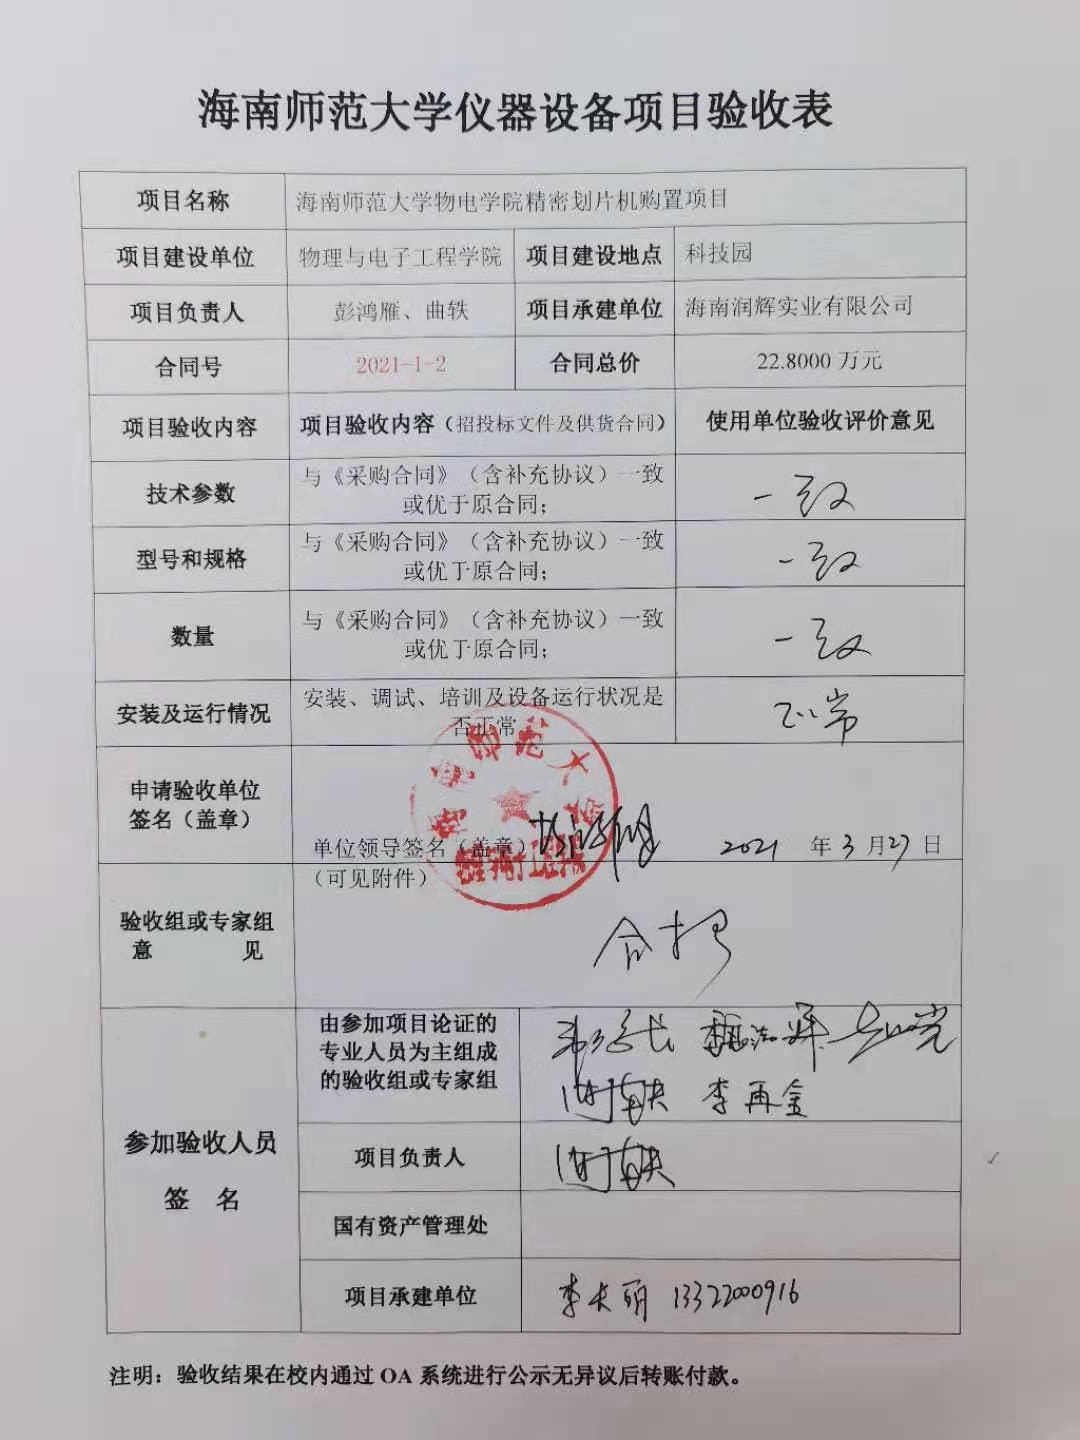 海南师范大学仪器设备项目验收表
项目名称 海南师范大学物电学院精密划片机购置项目
项目建设单位 物理与电子工程学院 项目建设地点 科技园
项目负责人 彭鸿雁、曲轶 项目承建单位 海南润辉实业有限公司
合同号 2021-1-2 合同总价 22.8000 万元
项目验收内容 项目验收内容（招投标文件及供货合同） 使用单位验收评价意见
技术参数 与《采购合同》（含补充协议）一致
或优于原合同； 一致
型号和规格 与《采购合同》（含补充协议）一致
或优于原合同； 一致
数量 与《采购合同》（含补充协议）一致
或优于原合同； 一致
安装及运行情况 安装、调试、培训及设备运行状况是
否正常 正常
申请验收单位
签名（盖章）
单位领导签名（盖章） 2021 年 3 月 27 日
海南师范大学
物理与电子工程学院
（可见附件）
验收组或专家组
意 见
合格
参加验收人员
签 名
由参加项目论证的
专业人员为主组成
的验收组或专家组
李再金
项目负责人
国有资产管理处
项目承建单位 13322000916
注明：验收结果在校内通过 OA 系统进行公示无异议后转账付款。